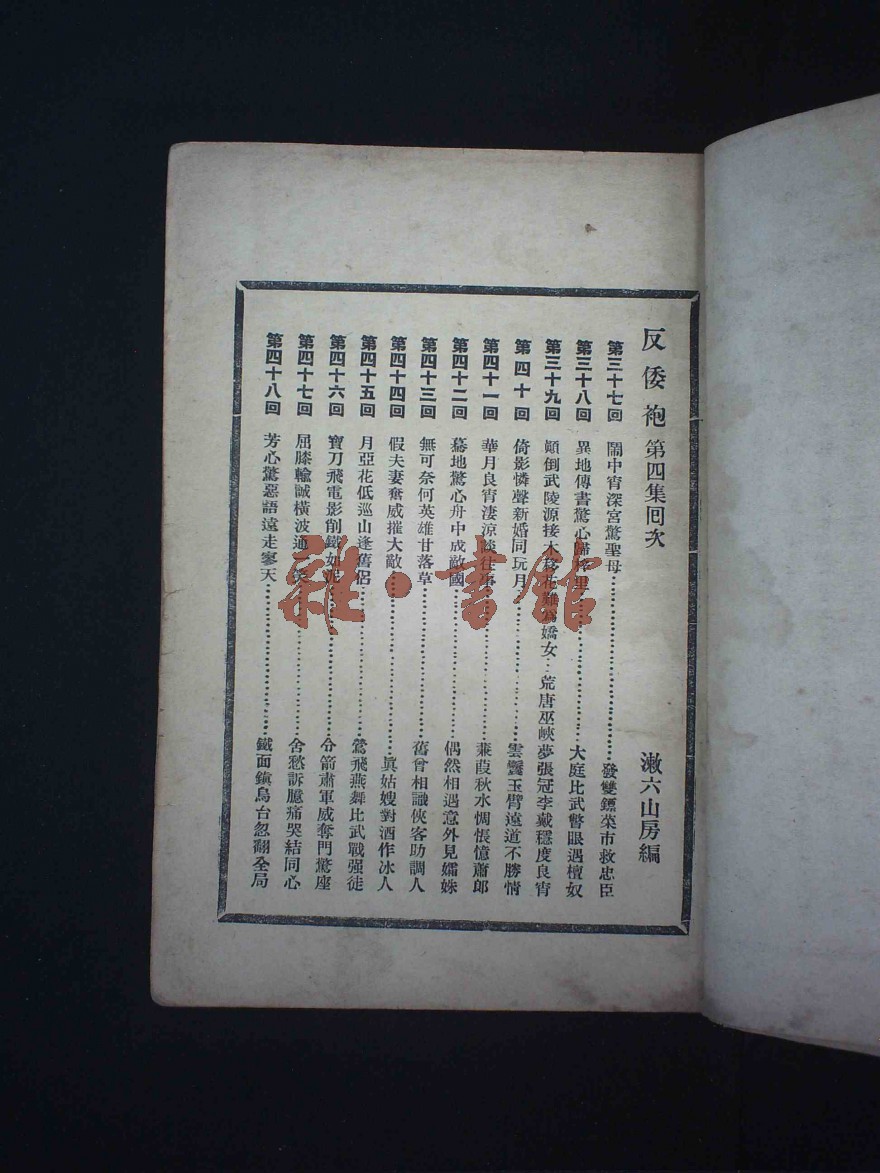 反倭袍 第四集回次 漱六山房編
第三十七回 鬧中宵深宮驚聖母 發雙鏢菜市救忠臣
第三十八回 異地傳書驚心歸梓里 大庭比武瞥眼遇檀奴
第三十九回 顛倒武陵源接木移花難爲嬌女 荒唐巫峽夢張冠李戴穩度良宵
第四十回 倚影憐聲新婚同玩月 雲鬟玉臂遠道不勝情
第四十一回 華月良宵淒涼談往事 蒹葭秋水惆悵憶蕭郎
第四十二回 驀地驚心舟中成敵國 偶然相遇意外見孀姝
第四十三回 無可奈何英雄甘落草 舊曾相識俠客助調人
第四十四回 假夫妻奮威摧大敵 眞姑嫂對酒作冰人
第四十五回 月亞花低巡山逢舊侶 鶯飛燕舞比武戰强徒
第四十六回 寶刀飛電影削鐵如泥 令箭肅軍威奪門驚座
第四十七回 屈膝輸誠橫波通一笑 含愁訴臆痛哭結同心
第四十八回 芳心驚惡語遠走寥天 鐵面鎭烏台忽翻全局
雜·書館